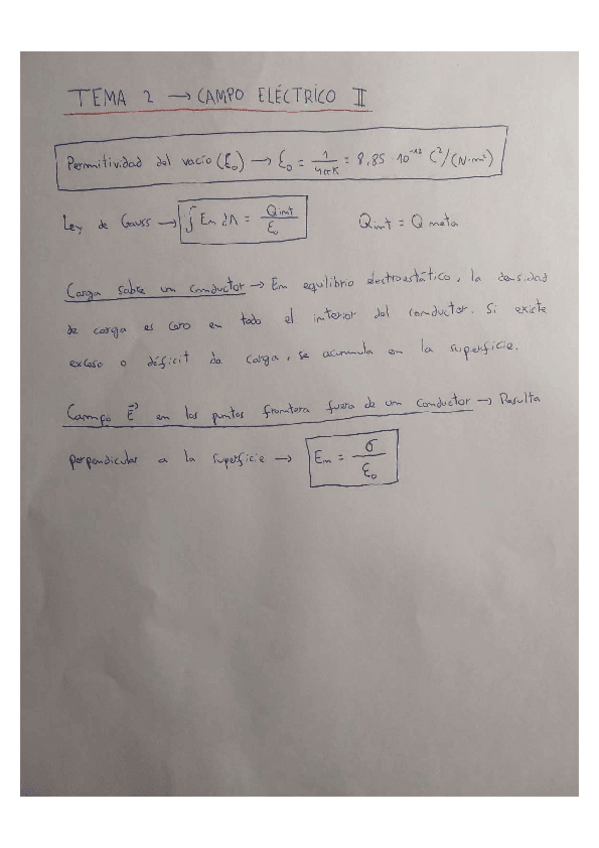 TEMA 2 → CAMPO ELÉCTRICO II
Permitividad del vacío (ε₀) → ε₀ = 1/4πK = 8,85 · 10⁻¹² C²/(N·m²)
Ley de Gauss → ∫ En dA = Qint/ε₀ Qint = Q neta
Carga sobre un conductor → En equilibrio electroestático, la densidad
de carga es cero en todo el interior del conductor. Si existe
exceso o déficit de carga, se acumula en la superficie.
Campo E⃗ en los puntos frontera fuera de un conductor → Resulta
perpendicular a la superficie → En = σ/ε₀